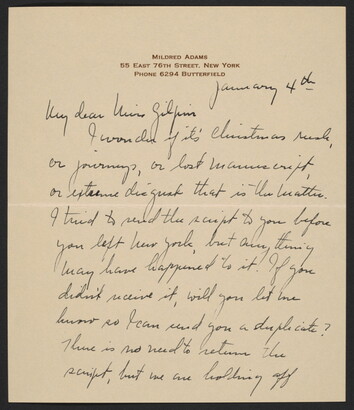 MILDRED ADAMS
55 EAST 76TH STREET, NEW YORK
PHONE 6294 BUTTERFIELD
January 4th
My dear Miss Gilpin
I wonder if it's Christmas rush,
or journeys, or lost manuscript,
or extreme disgust that is the matter.
I tried to send the script to you before
you left New York, but anything
may have happened to it. If you
didn't receive it, will you let me
know so I can send you a duplicate?
There is no need to return the
script, but we are holding off